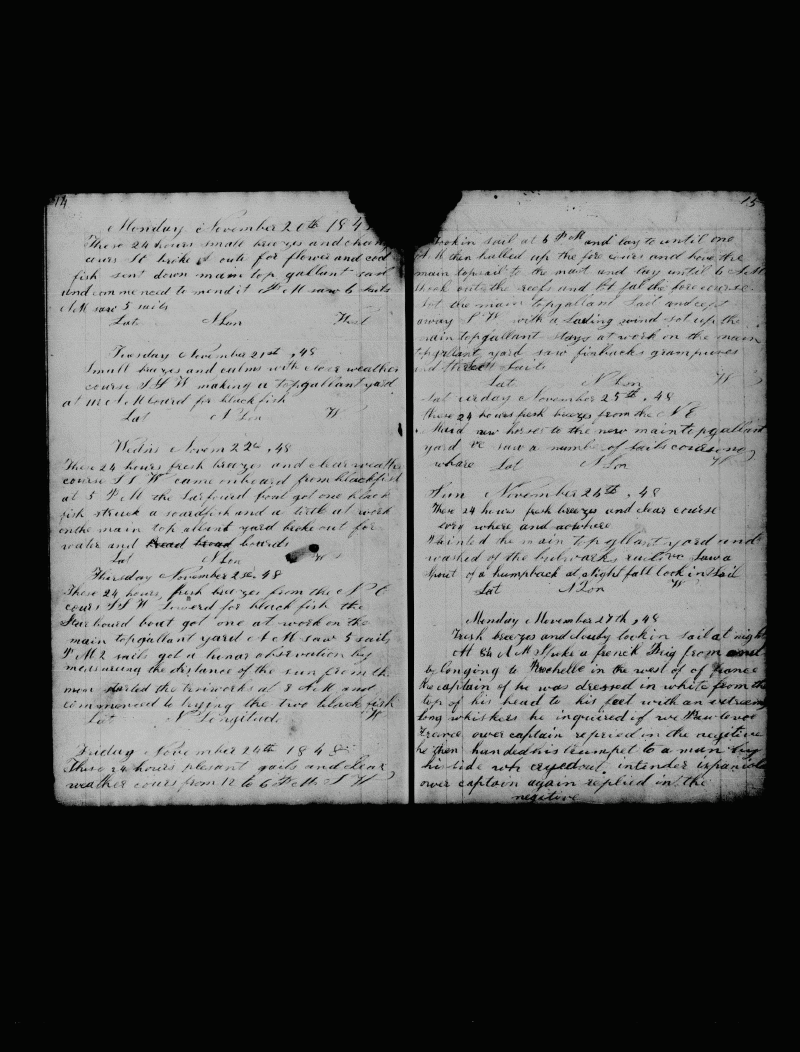 14
Monday November 20th 184
These 24 hours small breezes and chang
cours St brike out for flower and cod
fish sent down main top gallant sail
and commenced to mend it P M saw 6 sails
A M saw 5 sails
Lat N Lon West
Tuesday November 21st , 48
Small breezes and calms with clear weather
course S S W making a topgallant yard
at 11 A M lowerd for black fish
Lat N Lon W
Wedns Novem 22 , 48
These 24 hours fresh breezes and clear weather
course S S W came onboard from blackfish
at 5 P M the larboard boat got one black
fish struck a sordfish and a little at work
on the main top allant yard broke out for
water and bread boards
Lat N Lon W
Thursday November 23 , 48
These 24 hours, fresh breezes from the N E
cours S S W Lowerd for black fish the
Starboard boat got one at work on the
main topgallant yard A M saw 5 sails
P M 2 sails got a lunar observation by
measureing the distance of the sun from the
moon started the triworks at 8 A M and
commenced to trying the two black fish
Lat N Longitude W
Friday November 24th 1848
These 24 hours plesant gails and clear
weather cours from 12 to 6 P M S W
15
took in sail at 6 P M and lay to until one
A M then halled up the fore cours and hove the
main topsail to the mast and lay until 6 A M
took out the reefs and let fal the fore course
Set the main topgallant Sail and kept
away S W with a leading wind sot up the
main topgallant stays at work on the main
topgallant yard saw finbacks grampuses
and three Sails
Lat N Lon W
Saturday November 25th , 48
these 24 hours fresh breezes from the N E
Maid new horses to the new main topgallant
yard &c saw a number of sails course no
whare Lat N Lon W
Sun November 26th , 48
These 24 hours fresh breezes and clear course
evry where and nowhere
Painted the main topgallant yard and
washed of the bulwarks Saw a
spout of a humpback at night fall took in Sail
Lat N Lon W
Monday November 27th , 48
Fresh breezes and cloudy took in sail at night
At 8 A M Spoke a french Brig from and
belonging to Rochelle in the west of of france
the captain of he was dressed in white from the
top of his head to his feet with an extreem
long whiskers he inquired if we
France ower captain repried in the negitive
he then handed his trumpet to a man by
his side who cryed out intender ispaniola
ower captain again replied in the
negitive